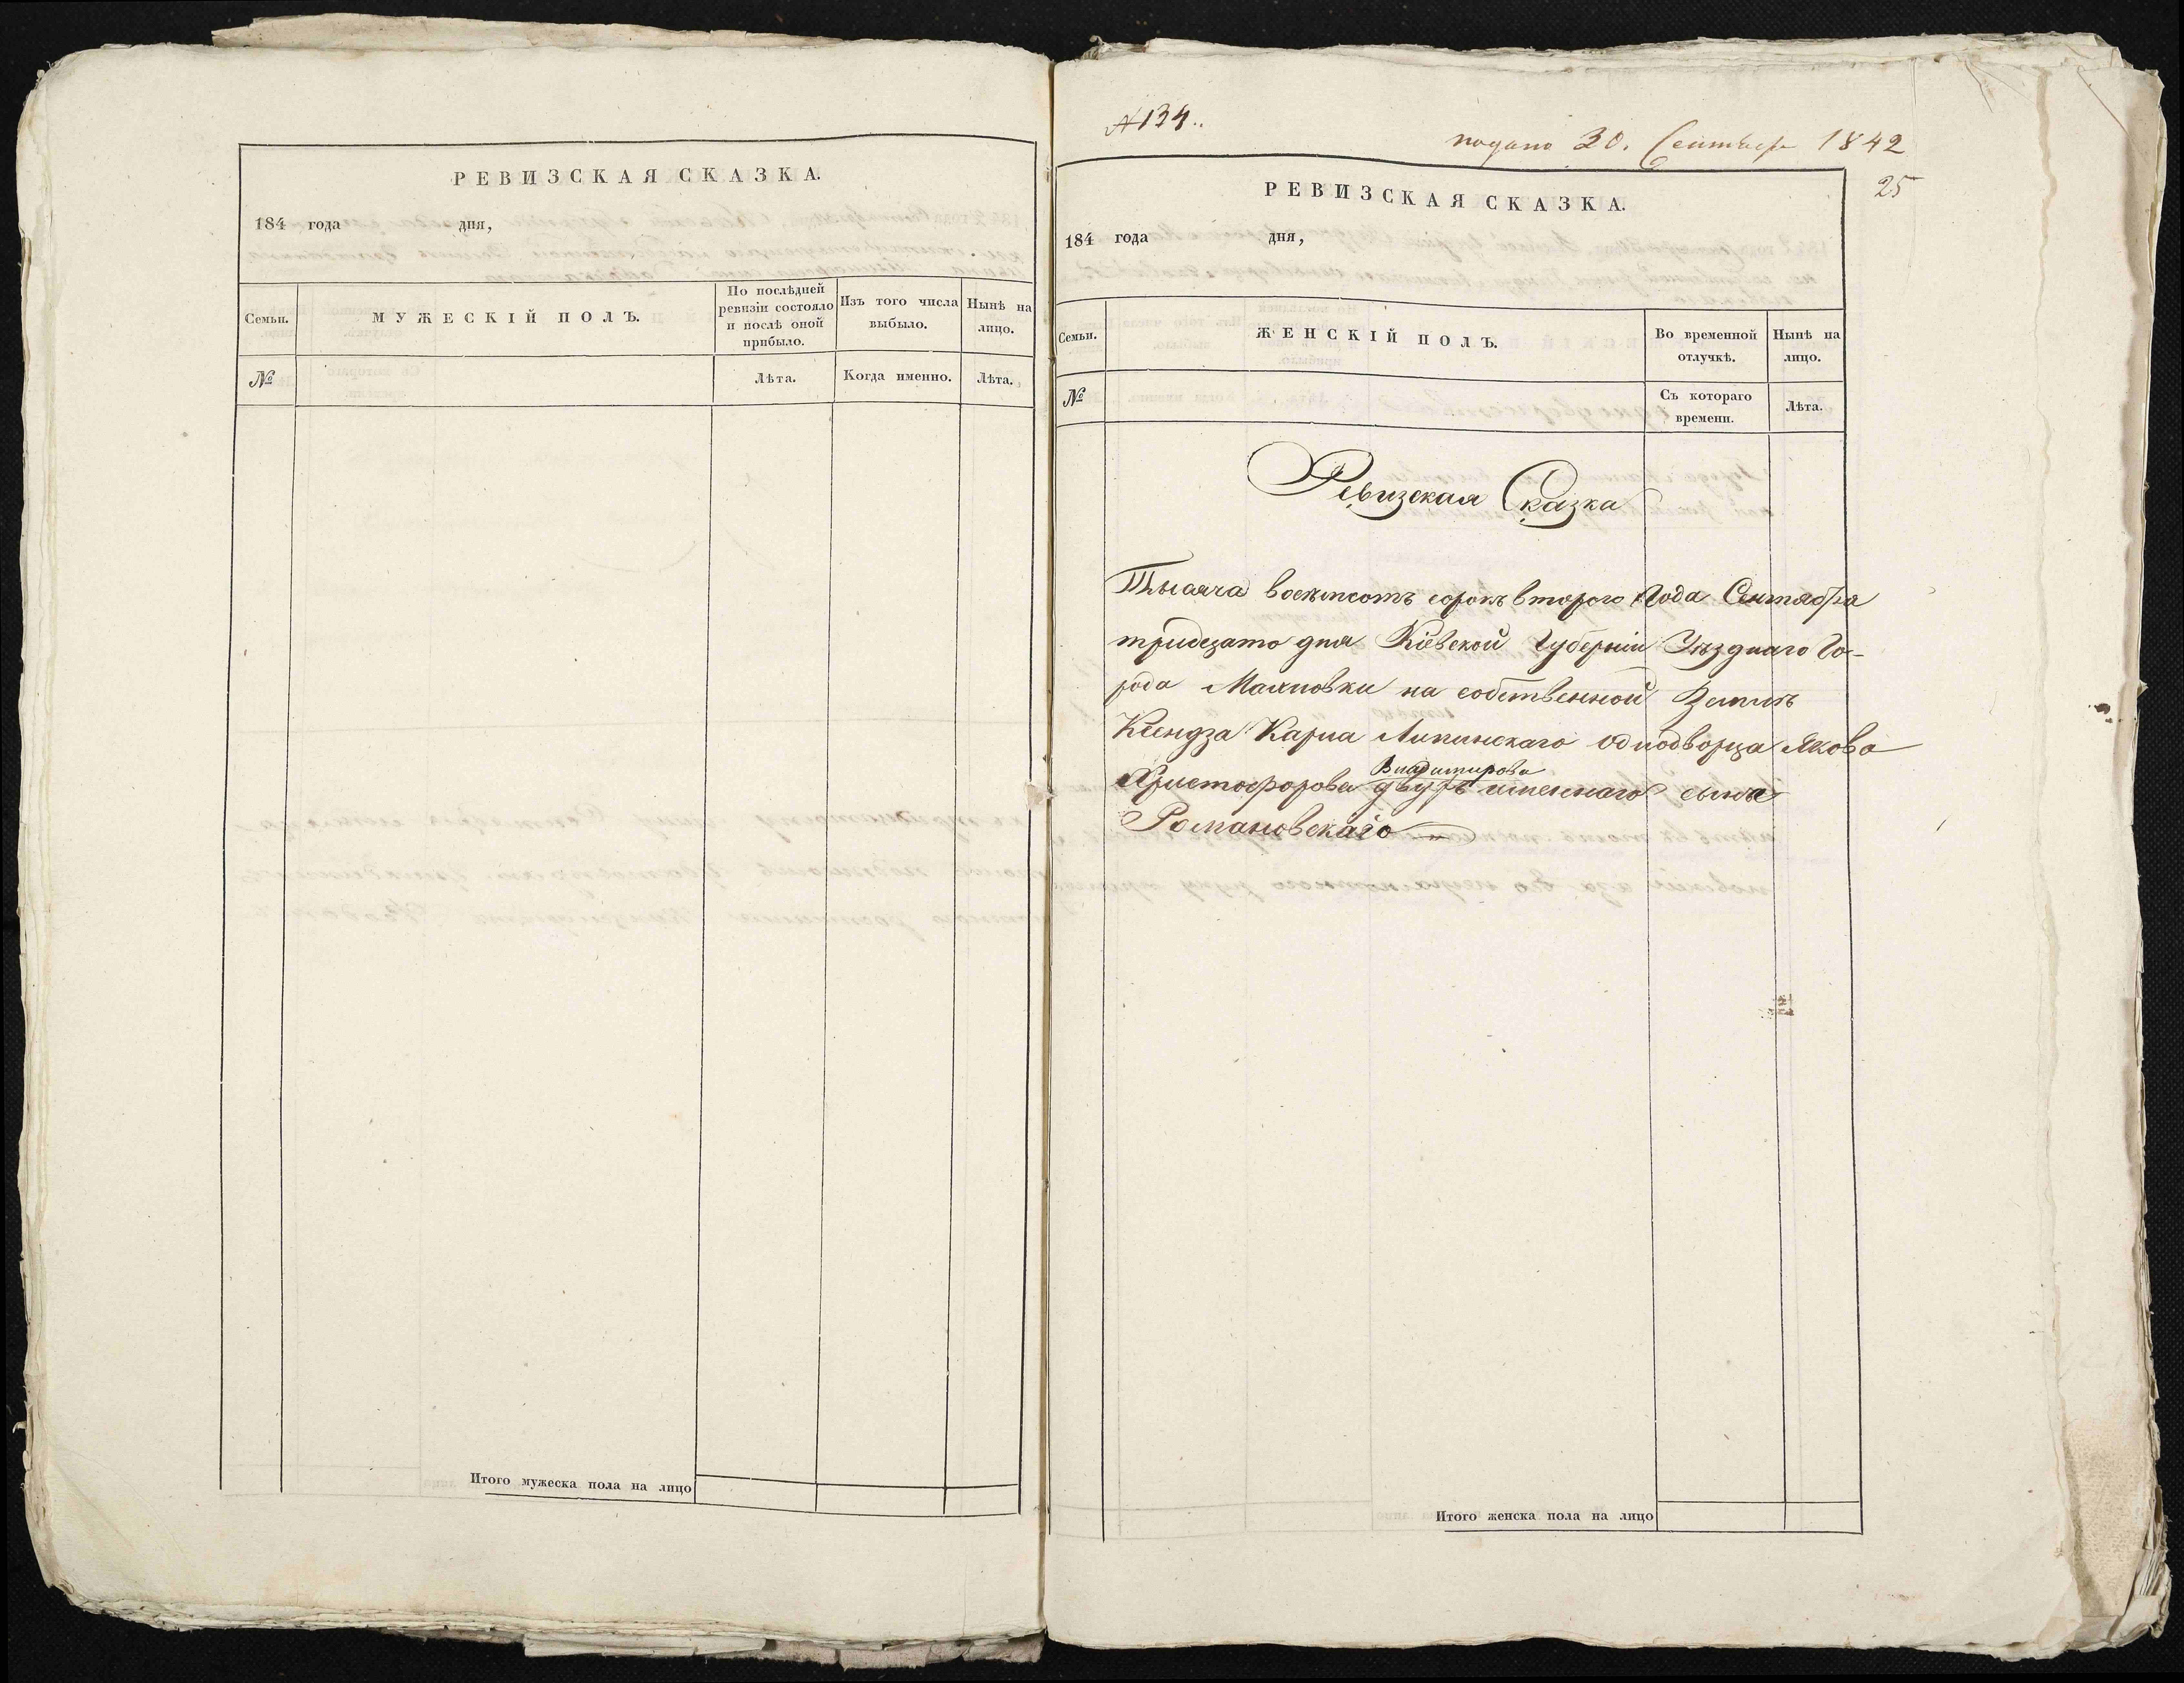 РЕВИЗСКАЯ СКАЗКА.
184 года дня,
Семьи.
МУЖЕСКІЙ ПОЛЪ.
По послѣдней ревизіи состояло и послѣ оной прибыло.
Изъ того числа выбыло.
Нынѣ на лицо.
№
Лѣта.
Когда именно.
Лѣта.
Итого мужеска пола на лицо
№ 134.
подано 30. Сентября 1842
25
РЕВИЗСКАЯ СКАЗКА.
184 года дня,
Семьи.
ЖЕНСКІЙ ПОЛЪ.
Во временной отлучкѣ.
Нынѣ на лицо.
№
Съ котораго времени.
Лѣта.
Ревизская Сказка
Тысяча восемсотъ сорокъ второго Года Сентября
тридцато дня Кіевской Губерніи Уѣзднаго Го-
рода Махновки на собственной Землѣ
Ксендза Карла Липинскаго Однодворца Якова
Владимирова
Христофорова двухъ именнаго сына
Романовскаго
Итого женска пола на лицо